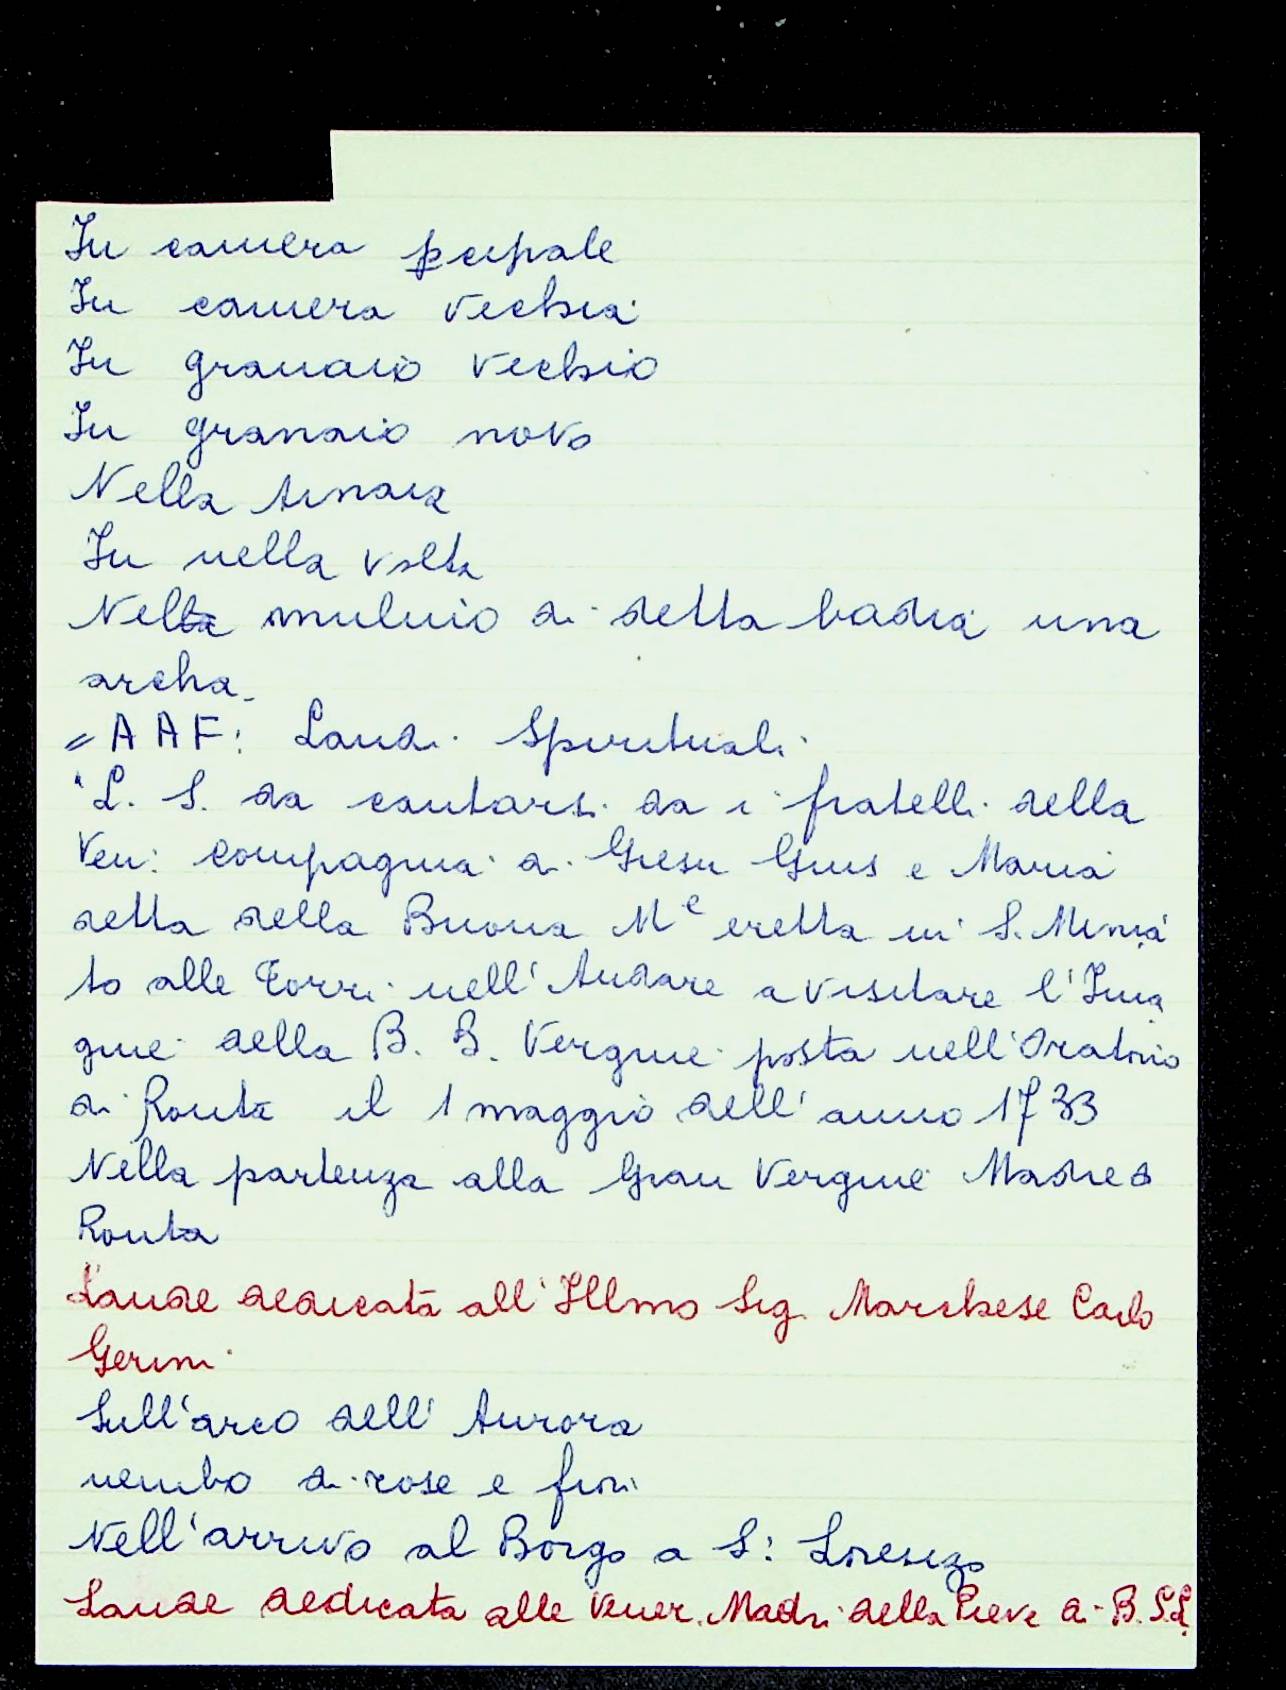 In camera pcipale
In camera vechia
In granaio vechio
In granaio novo
Nella tinaia
In nella volta
Nella mulino di detta badia una
archa
= AAF: Laudi Spirituali
"L. S. da cantarsi da i fratelli della
Ven: compagnia di Giesu Gius e Maria
detta della Buona Me eretta in S. Minia
to alle Torri nell'Andare a visitare l'Ima
gine della B. B. Vergine posta nell'Oratorio
di Ronta il 1 maggio dell'anno 1733
Nella partenza alla Gran Vergine Madre d
Ronta
Laude dedicata all'Illmo Sig. Marchese Carlo
Gerini
Sull'arco dell'Aurora
nembo di rose e fiori
Nell'arrivo al Borgo a S: Lorenzo
Laude dedicata alle Vener. Madri della Pieve di B. S. L.